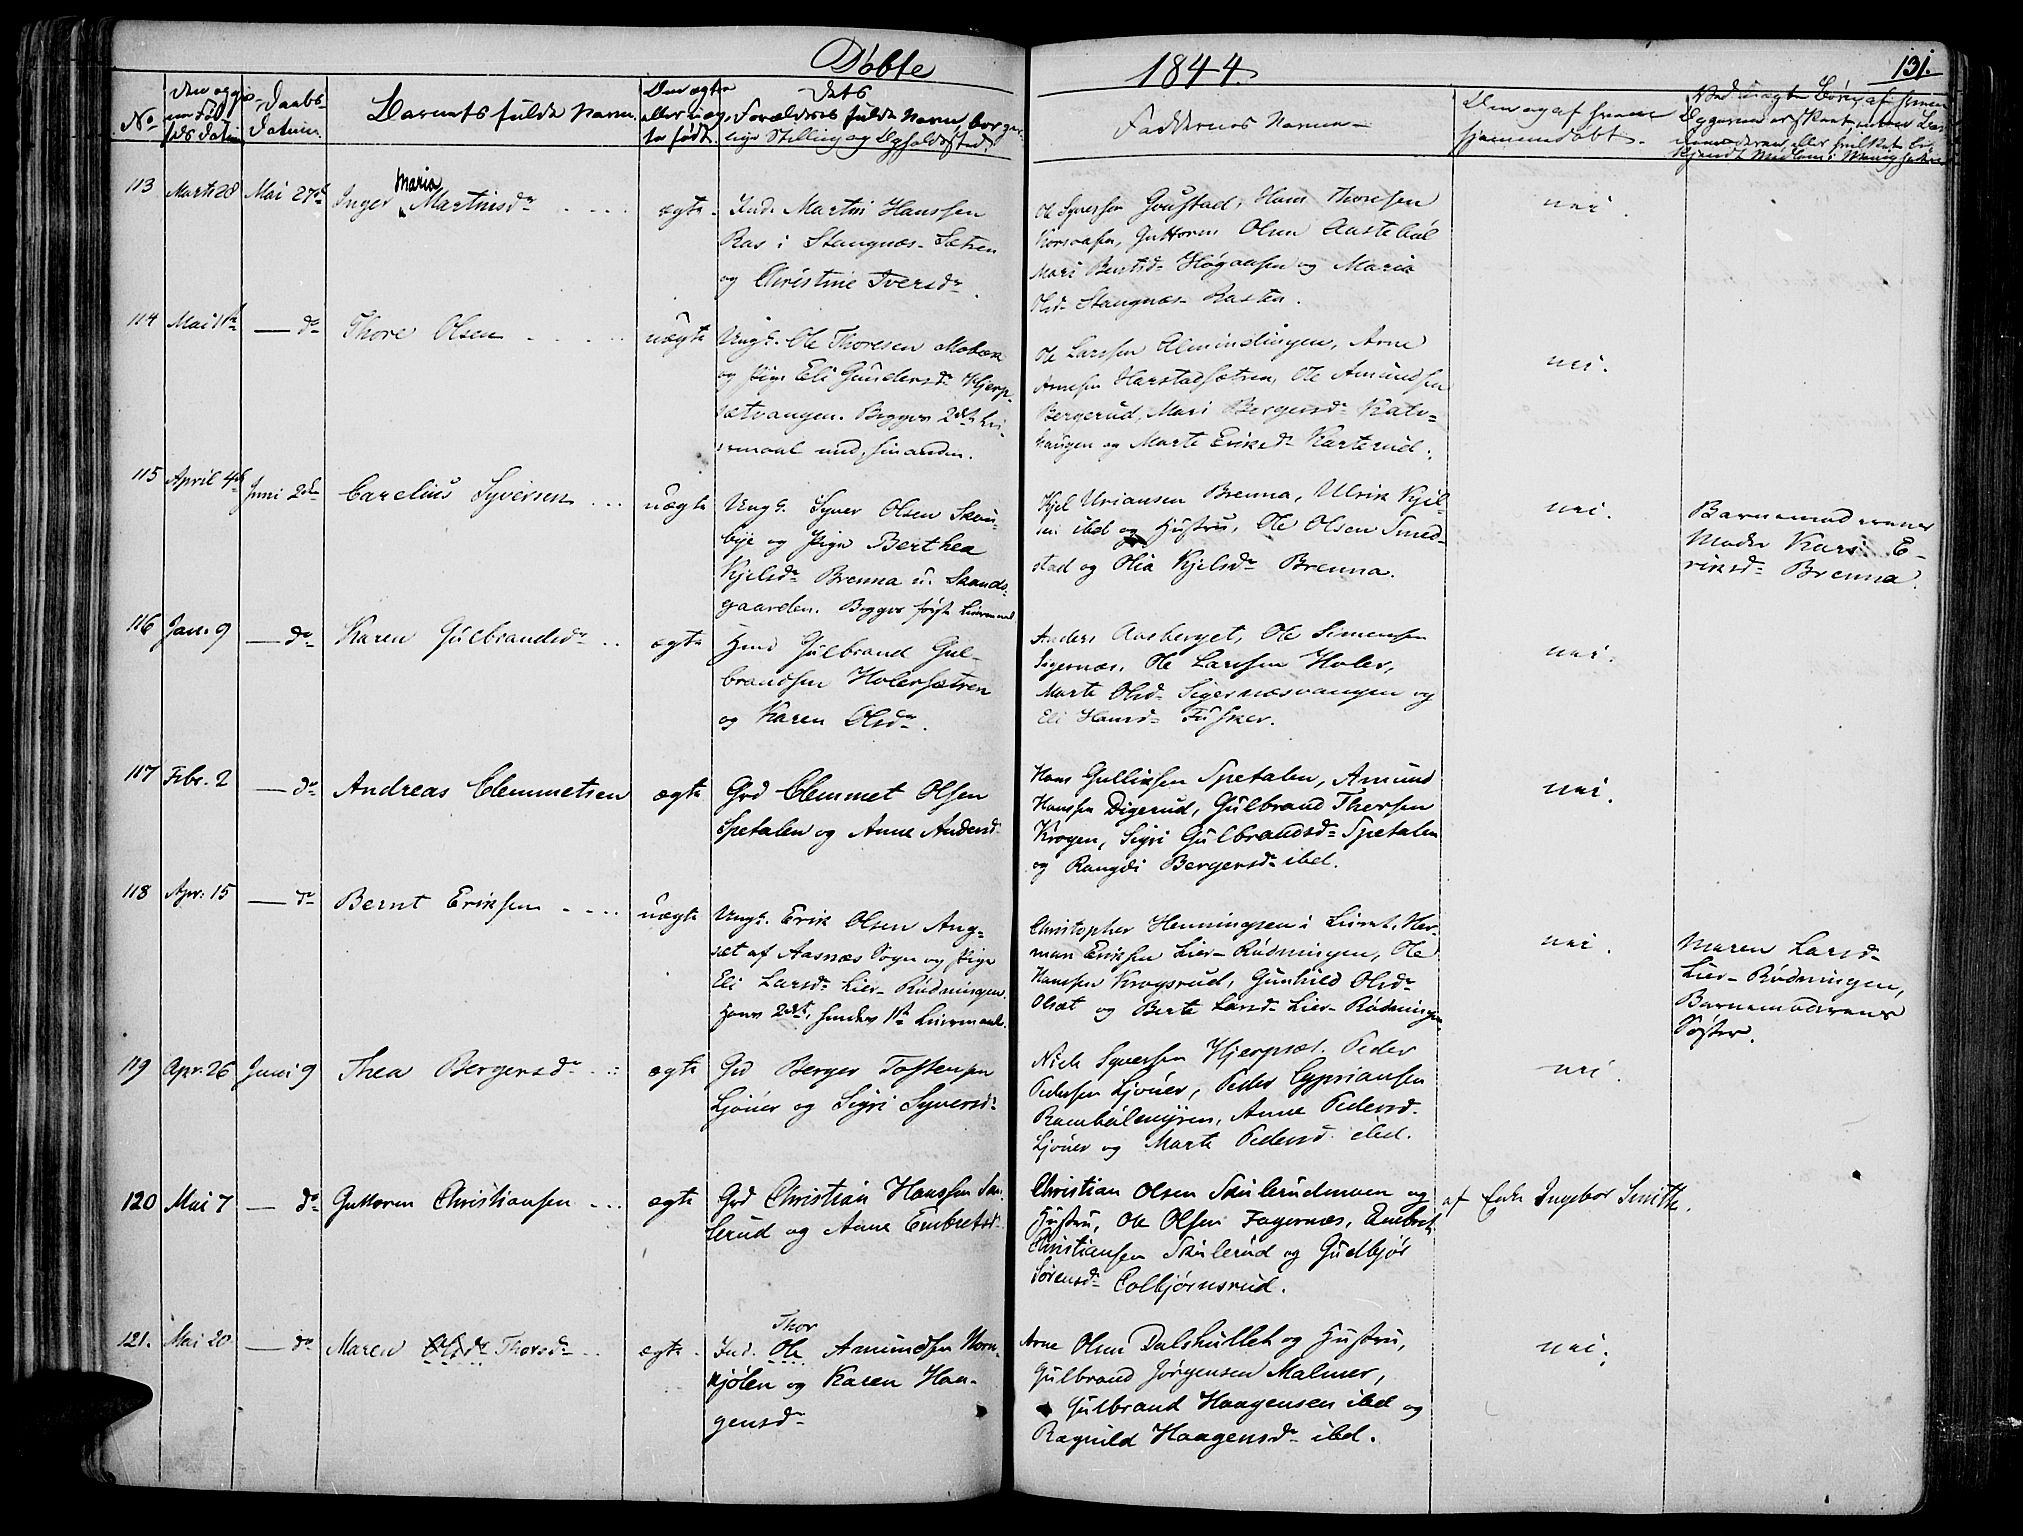 Døbte 1844. 131.
No
Daabs-
Datum.
Barnets fulde Navn.
Faddernes Navne
hjemmedøbt.
113 Marts 28 Mai 27de Inger Maria Martinsdr ægte
Ind. Martin Hanssen
Ras i Stangnæs-Sætren
og Christine Iversdr.
Ole Syversen Goustad, Hans Thoresen
Korsaasen, Guttorm Olsen Aastebøl
Mari Berntsd. Høgaasen og Maria
Olsd. Stangnæs-Rasten.
nei.
114 Mai 11te — do Thore Olsen uægte
Ungk. Ole Thoresen Mobæk
og Pige Eli Gundersdr Kjerp-
sætvangen. Begges 2det Lei-
ermaal med hinanden.
Ole Larssen Almindingen, Arne
Arnesen Harstadsætren, Ole Amundsen
Bergerud, Mari Bergersdr Kato-
haugen og Marte Eriksd. Karterud.
nei.
115 April 4de Juni 2den Carelius Syversen uægte
Ungk. Syver Olsen Skou-
bye og Pige Berthea
Kjelsdr Brenna u. Skands-
gaarden. Begges første Leiermaal
Kjel Uriansen Brenna, Ulrik Kjel-
sen ibd og Hustru, Ole Olsen Smed-
stad og Olia Kjelsdr Brenna.
nei.
Barnemoderens
Moder Kari E-
riksd. Brenna.
116 Jan. 9 — do Karen Gulbrandsdr ægte
Hmd Gulbrand Gul-
brandsen Holersætren
og Karen Olsdr.
Anders Aasberget, Ole Simensen
Sigernæs, Ole Larssen Holer,
Marte Olsd. Sigernæsvangen og
Eli Hansd. Fusker.
nei.
117 Febr. 2 — do Andreas Clemmetsen ægte
Grd Clemmet Olsen
Spetalen og Anne Andersd.
Hans Gulliksen Spetalen, Amund
Hanssen Digerud, Gulbrand Thorsen
Krogen, Sigri Gulbrandsd. Spetalen
og Rangdi Bergersd. ibd.
nei.
118 Apr. 15 — do Bernt Eriksen uægte
Ungk. Erik Olsen Ang-
set af Aasnæs Sogn og Pige
Eli Larsdr Lier-Rødningen.
Hans 2det, hendes 1ste Leiermaal.
Christopher Henningsen i Lieret, Her-
man Eriksen Lier-Rødningen, Ole
Hanssen Krogsrud, Gunhild Olsdr
Olsæt og Berte Larsd. Lier-Rødningen
nei.
Maren Larsd.
Lier-Rødningen,
Barnemoderens
Søster.
119 Apr. 26 Juni 9 Thea Bergersdr ægte
Grd Berger Tostensen
Ljøner og Sigri Syversd.
Niels Syversen Hjerpsæt, Peder
Pedersen Ljøner, Peder Cypriansen
Rambølmyren, Anne Pedersd.
Ljøner og Marte Pedersd. ibd.
nei.
120 Mai 7 — do Guttorm Christiansen ægte
Grd Christian Hanssen Sku-
lerud og Anne Embretsd.
Christian Olsen Skulerudmoen og
Hustru, Ole Olsen Fagernæs, Embret
Christiansen Skulerud og Gudbjør
Sørensd. Colbjørnsrud.
af Enke Ingebor Smitte.
121. Mai 20 — do Maren Olsdr Thorsdr ægte
Ind. Ole Thor Amundsen Norn-
kjølen og Karen Haa-
gensdr
Arne Olsen Dalshullet og Hustru,
Gulbrand Jørgensen Malmer,
Gulbrand Haagensen ibd og
Ragnild Haagensd. ibd.
nei.